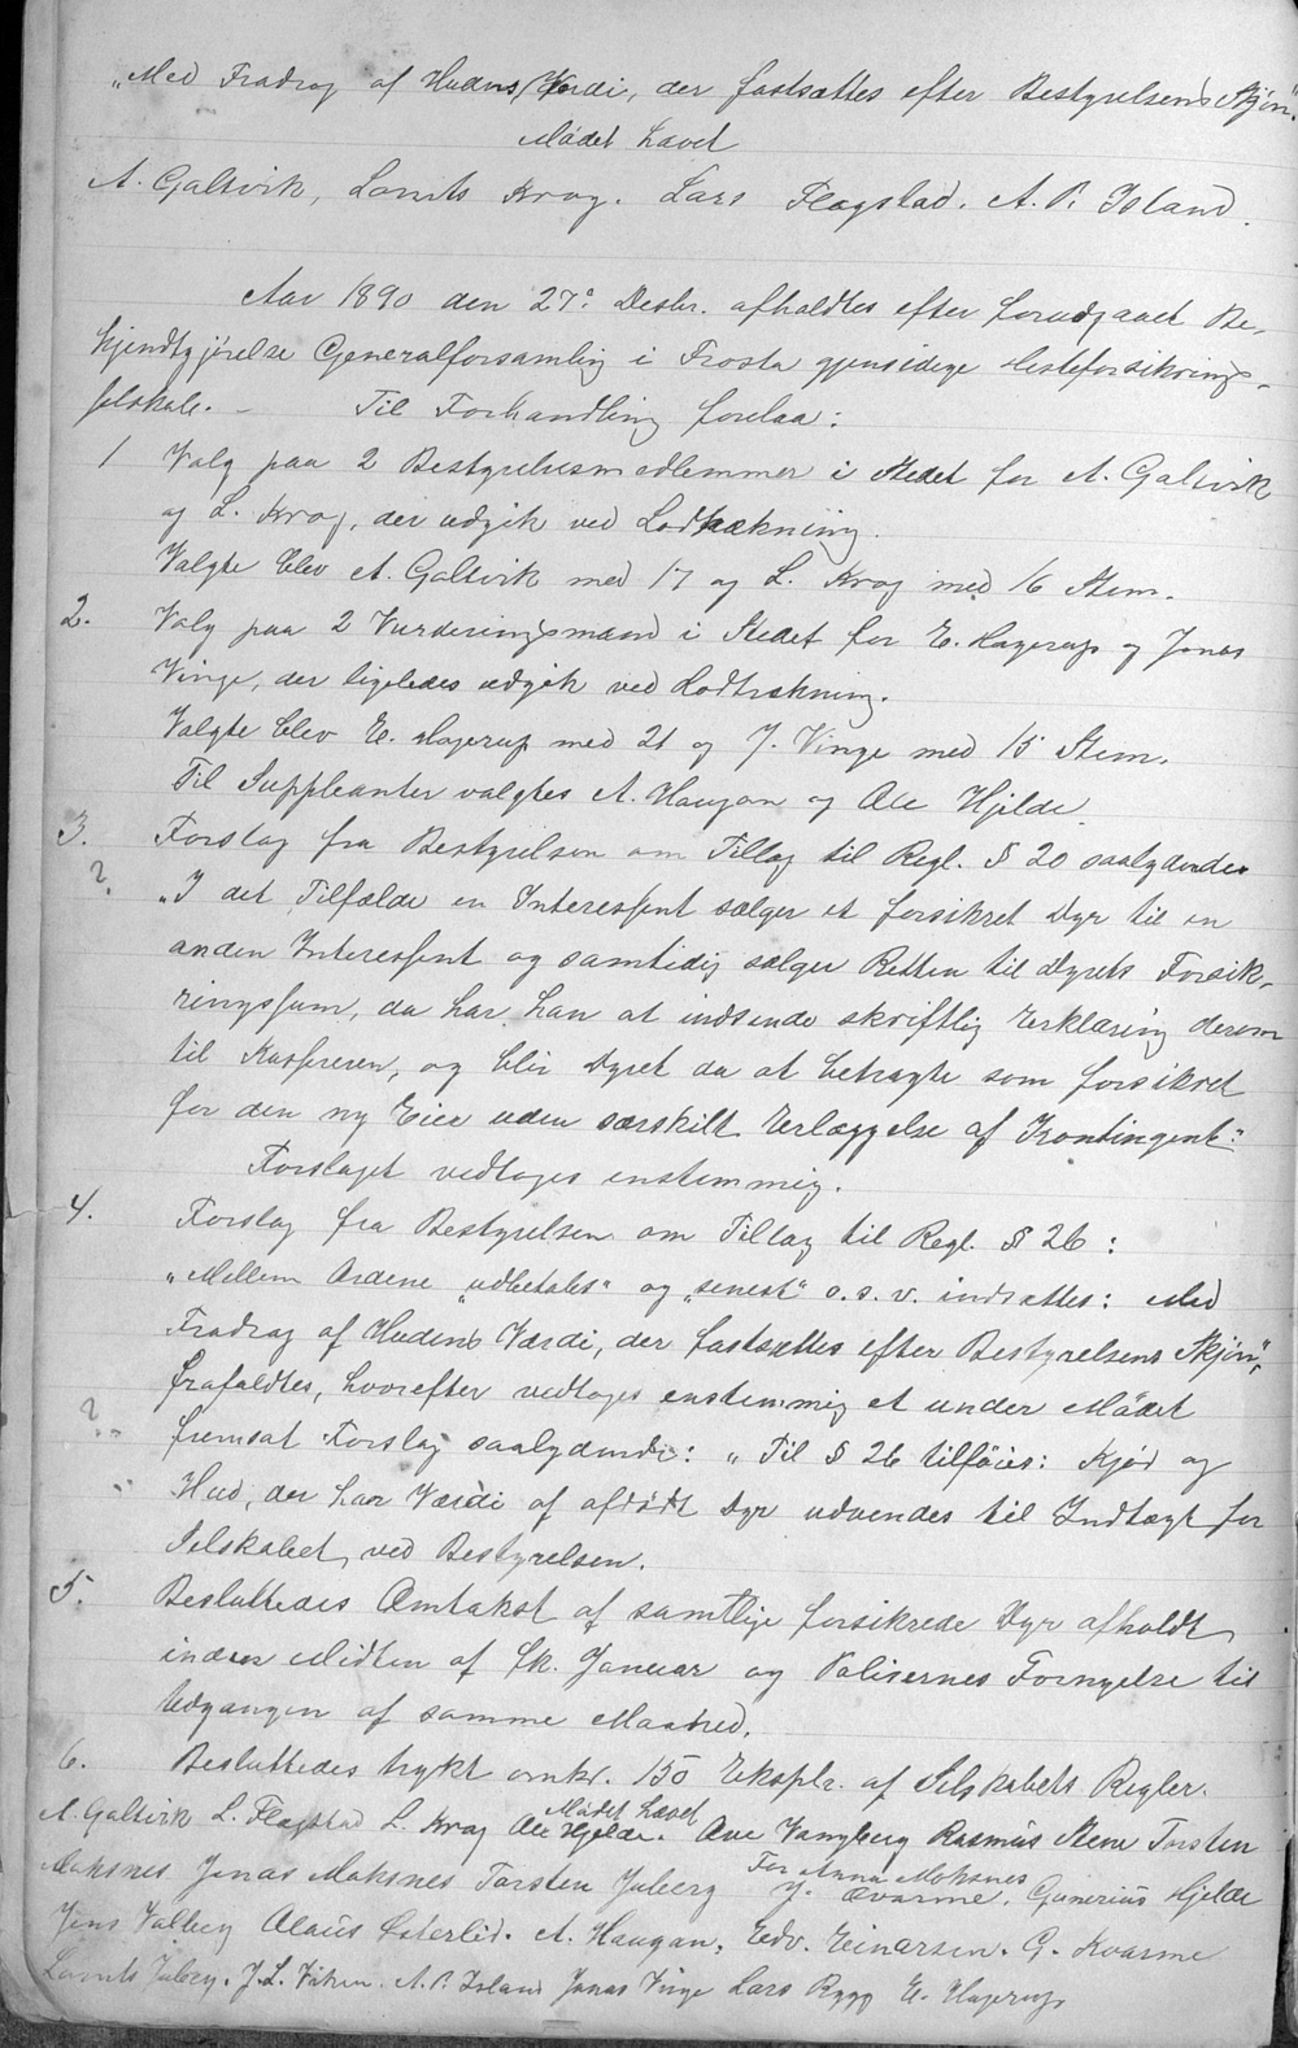 „Med Fradrag af Hudens Værdi, der fastsættes efter Bestyrelsens Skjøn".
Mødet hævet
A. Galtvik, Lornts Krog. Lars Flagstad. A. P. Island.
Aar 1890 den 27de Desbr. afholdtes efter forudgaaet Be-
kjendtgjørelse Generalforsamling i Frosta gjensidige Hesteforsikrings-
selskab. – Til Forhandling forelaa:
1 Valg paa 2 Bestyrelsesmedlemmer i Stedet for A. Galtvik
og L. Krog, der udgik ved Lodtrækning.
Valgte blev A. Galtvik med 17 og L. Krog med 16 Stem.
2. Valg paa 2 Vurderingsmænd i Stedet for E. Hagerup og Jonas
Vinge, der ligeledes udgik ved Lodtrækning.
Valgte blev E. Hagerup med 21 og J. Vinge med 15 Stem.
Til Suppleanter valgtes A. Haugan og Ole Hjelde.
3. Forslag fra Bestyrelsen om Tillæg til Regl. § 20 saalydende
? „I det Tilfælde en Interessent sælger et forsikret Dyr til en
anden Interessent og samtidig sælger Retten til Dyrets Forsik-
ringssum, da har han at indsende skriftlig Erklæring derom
til Kassereren, og blir Dyret da at betragte som forsikret
for den ny Eier uden særskilt Erlæggelse af Kontingent."
Forslaget vedtoges enstemmig.
4. Forslag fra Bestyrelsen om Tillæg til Regl. § 26:
„Mellem Ordene „udbetales" og „senest" o. s. v. indsættes: Med
Fradrag af Hudens Værdi, der fastsættes efter Bestyrelsens Skjøn",
frafaldtes, hvorefter vedtoges enstemmig et under Mødet
? fremsat Forslag saalydende: „Til § 26 tilføies: Kjød og
Hud, der har Værdi af afdødt Dyr udvendes til Indtægt for
Selskabet, ved Bestyrelsen.
5. Besluttedes Omtakst af samtlige forsikrede Dyr afholdt
inden Midten af fk. Januar og Polisernes Fornyelse til
Udgangen af samme Maaned.
6. Besluttedes trykt omkr. 150 Eksplr. af Selskabets Regler.
Mødet hævet
A. Galtvik L. Flagstad L. Krog Ole Hjelde. Ove Vangberg Rasmus Stene Torsten
For Anna Moksnes
Moksnes Jonas Moksnes Torsten Juberg J. Kvarme. Gunerius Hjelde
Jens Valberg Olaus Østerlid. A. Haugan. Edv. Einarsen. G. Kvarme
Lornts Juberg. J. L. Viken. A. P. Island Jonas Vinge Lars Rygg E. Hagerup